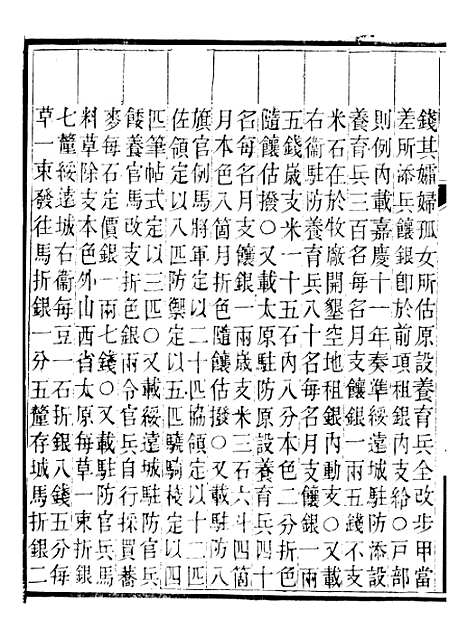 錢其孀婦孤女所估原設養育兵全改步甲當
差所添兵餉銀卽於前項租銀內支給○戸部
則例內載嘉慶十一年奏準綏遠城駐防添設
養育兵三百名每名月支餉銀一兩五錢不支
米石在於牧廠開墾空地租銀內動支○又載
右衞駐防養育兵八十名每名月支餉銀一兩
五錢歲支米一十五石內八分本色二分折色
隨餉估撥○又載太原駐防原設養育兵四十
名每名月支餉銀一兩歲支米三石六斗四箇
月本色八箇月折色隨餉估撥○又載駐防八
旗官例馬將軍定以二十匹協領定以十二匹
佐領定以八匹防禦定以五匹驍騎校定以四
匹筆帖式定以三匹○又載綏遠城駐防官兵
餧養官馬改支折色銀兩令官兵自行採買蕎
麥每石定價銀一兩七錢○又載駐防官兵馬
料草除支本色外山西省太原每草一束折銀
七釐綏遠城右衞每豆一石折銀八錢五分每
草一束發往馬折銀一分五釐存城馬折銀二